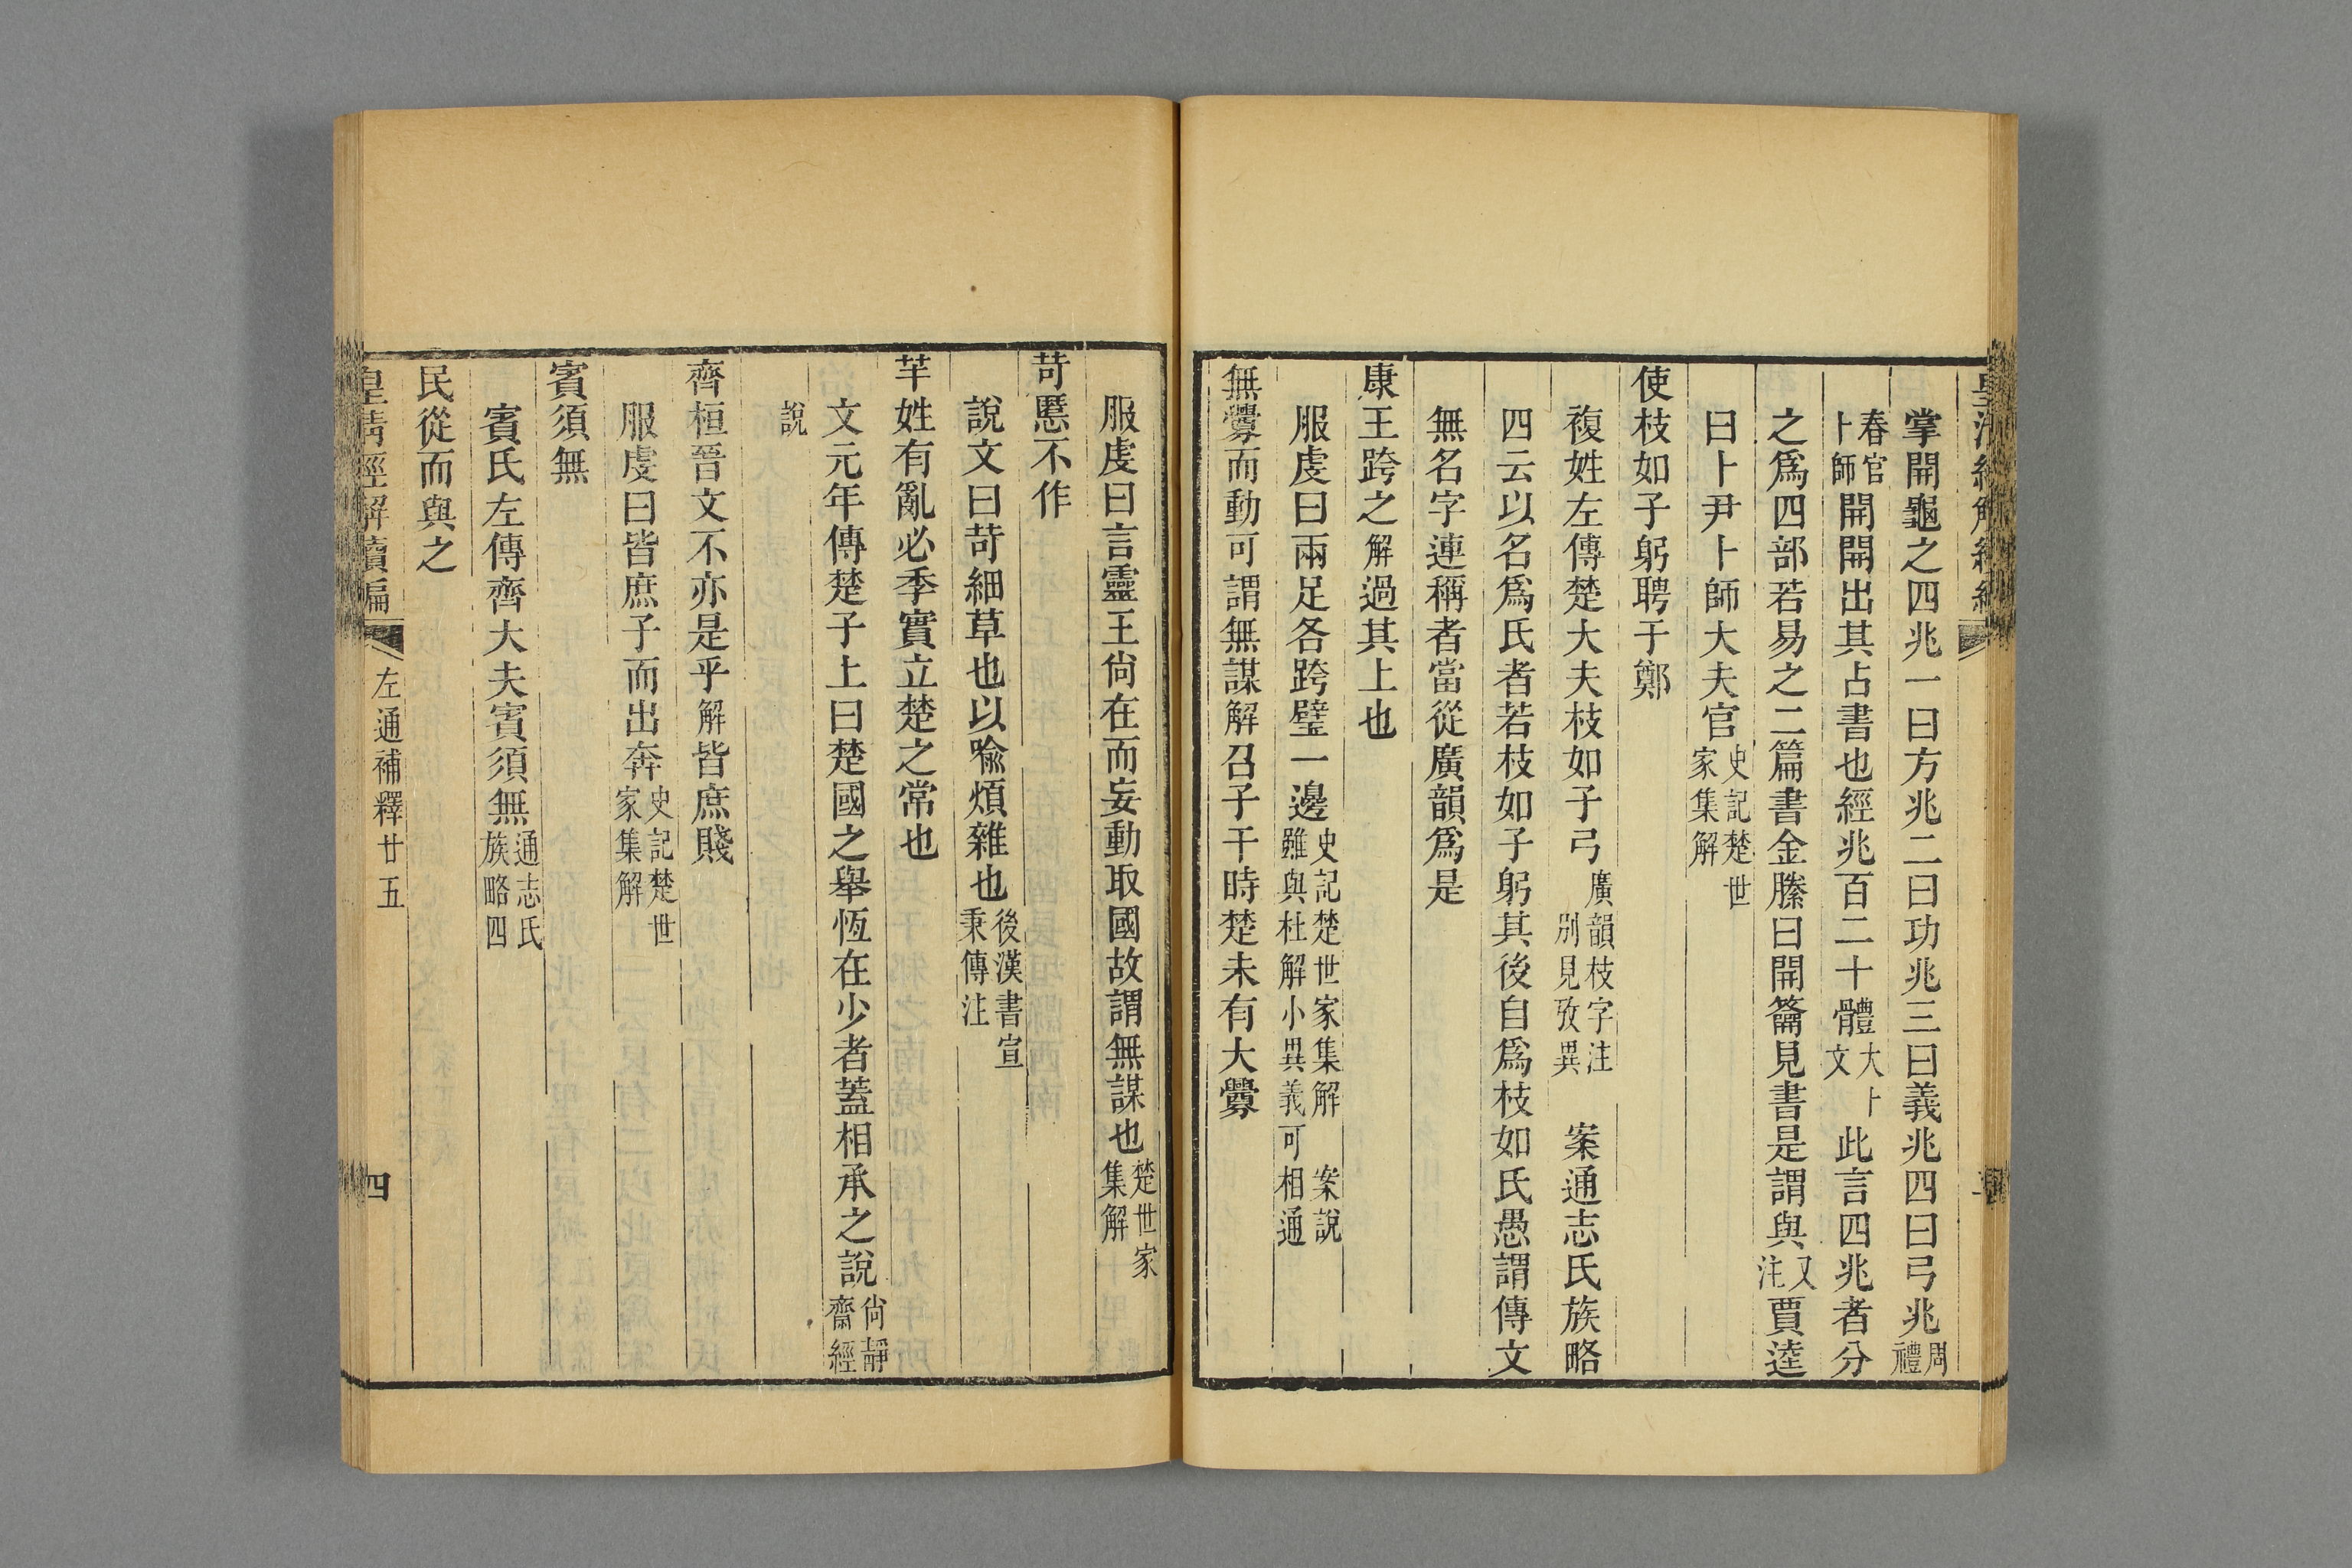 掌開龜之四兆一曰方兆二曰功兆三曰義兆四曰弓兆周禮
春官卜師開開出其占書也經兆百二十體大卜文此言四兆者分
之爲四部若易之二篇書金縢曰開籥見書是謂與又注賈逵
曰卜尹卜師大夫官史記楚世家集解
使枝如子躬聘于鄭
複姓左傳楚大夫枝如子弓廣韻枝字注別見攷異案通志氏族略
四云以名爲氏者若枝如子躬其後自爲枝如氏愚謂傳文
無名字連稱者當從廣韻爲是
康王跨之解過其上也
服虔曰兩足各跨璧一邊史記楚世家集解案說雖與杜解小異義可相通
無釁而動可謂無謀解召子干時楚未有大釁
服虔曰言靈王尙在而妄動取國故謂無謀也楚世家集解
苛慝不作
說文曰苛細草也以喩煩雜也後漢書宣秉傳注
芉姓有亂必季實立楚之常也
文元年傳楚子上曰楚國之舉恆在少者蓋相承之說尙靜齋經
說
齊桓晉文不亦是乎解皆庶賤
服虔曰皆庶子而出奔史記楚世家集解
賓須無
賓氏左傳齊大夫賓須無通志氏族略四
民從而與之
皇淸經解續編
左通補釋廿五
四